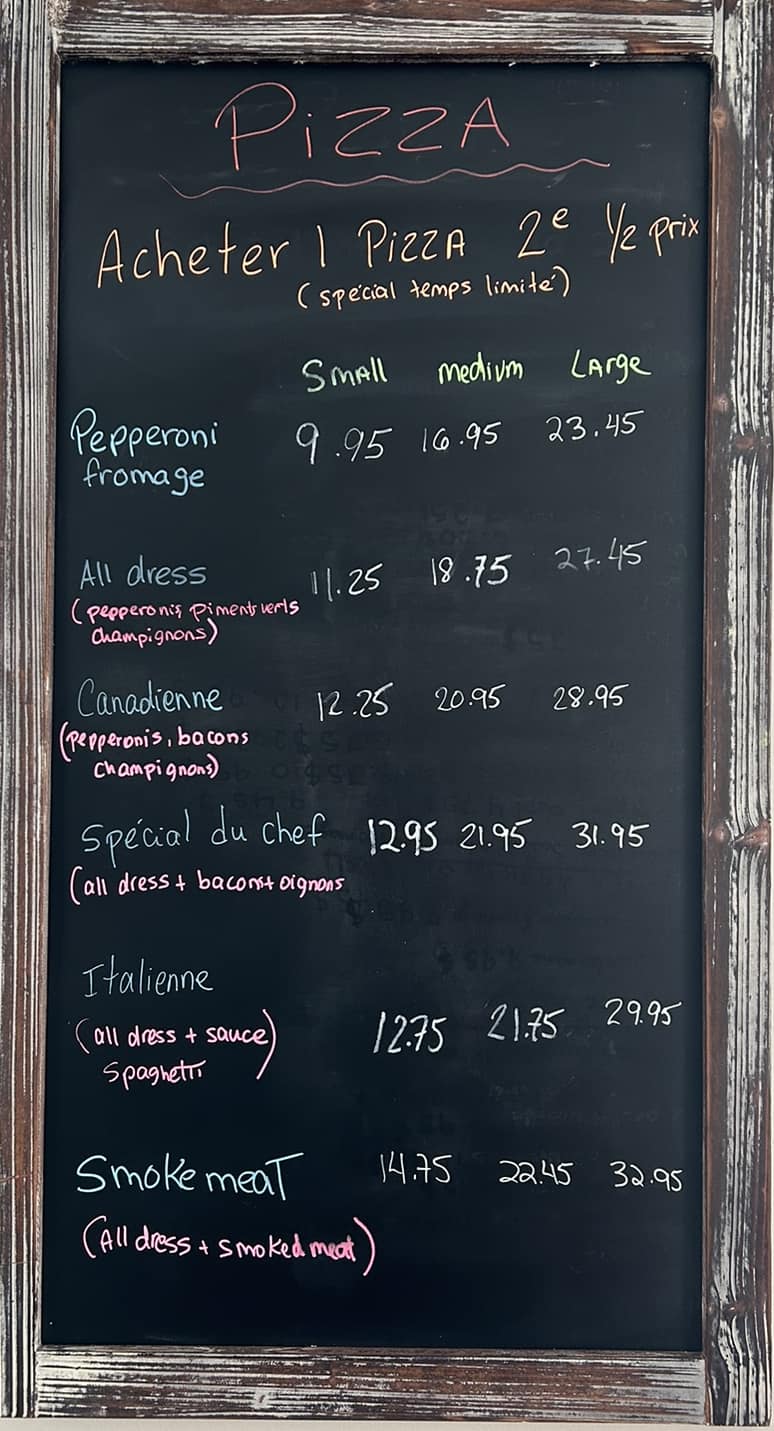 PiZZA
Acheter 1 PizzA 2e 1/2 prix
(spécial temps limité)
SMAll medium LArge
Pepperoni 9.95 16.95 23.45
fromage
All dress 11.25 18.75 27.45
(pepperonis, piments verts
champignons)
Canadienne 12.25 20.95 28.95
(pepperonis, bacons
champignons)
Spécial du chef 12.95 21.95 31.95
(all dress + bacons+ oignons
Italienne
(all dress + sauce) 12.75 21.75 29.95
spaghetti
Smoke meat 14.75 22.45 32.95
(All dress + smoked meat)